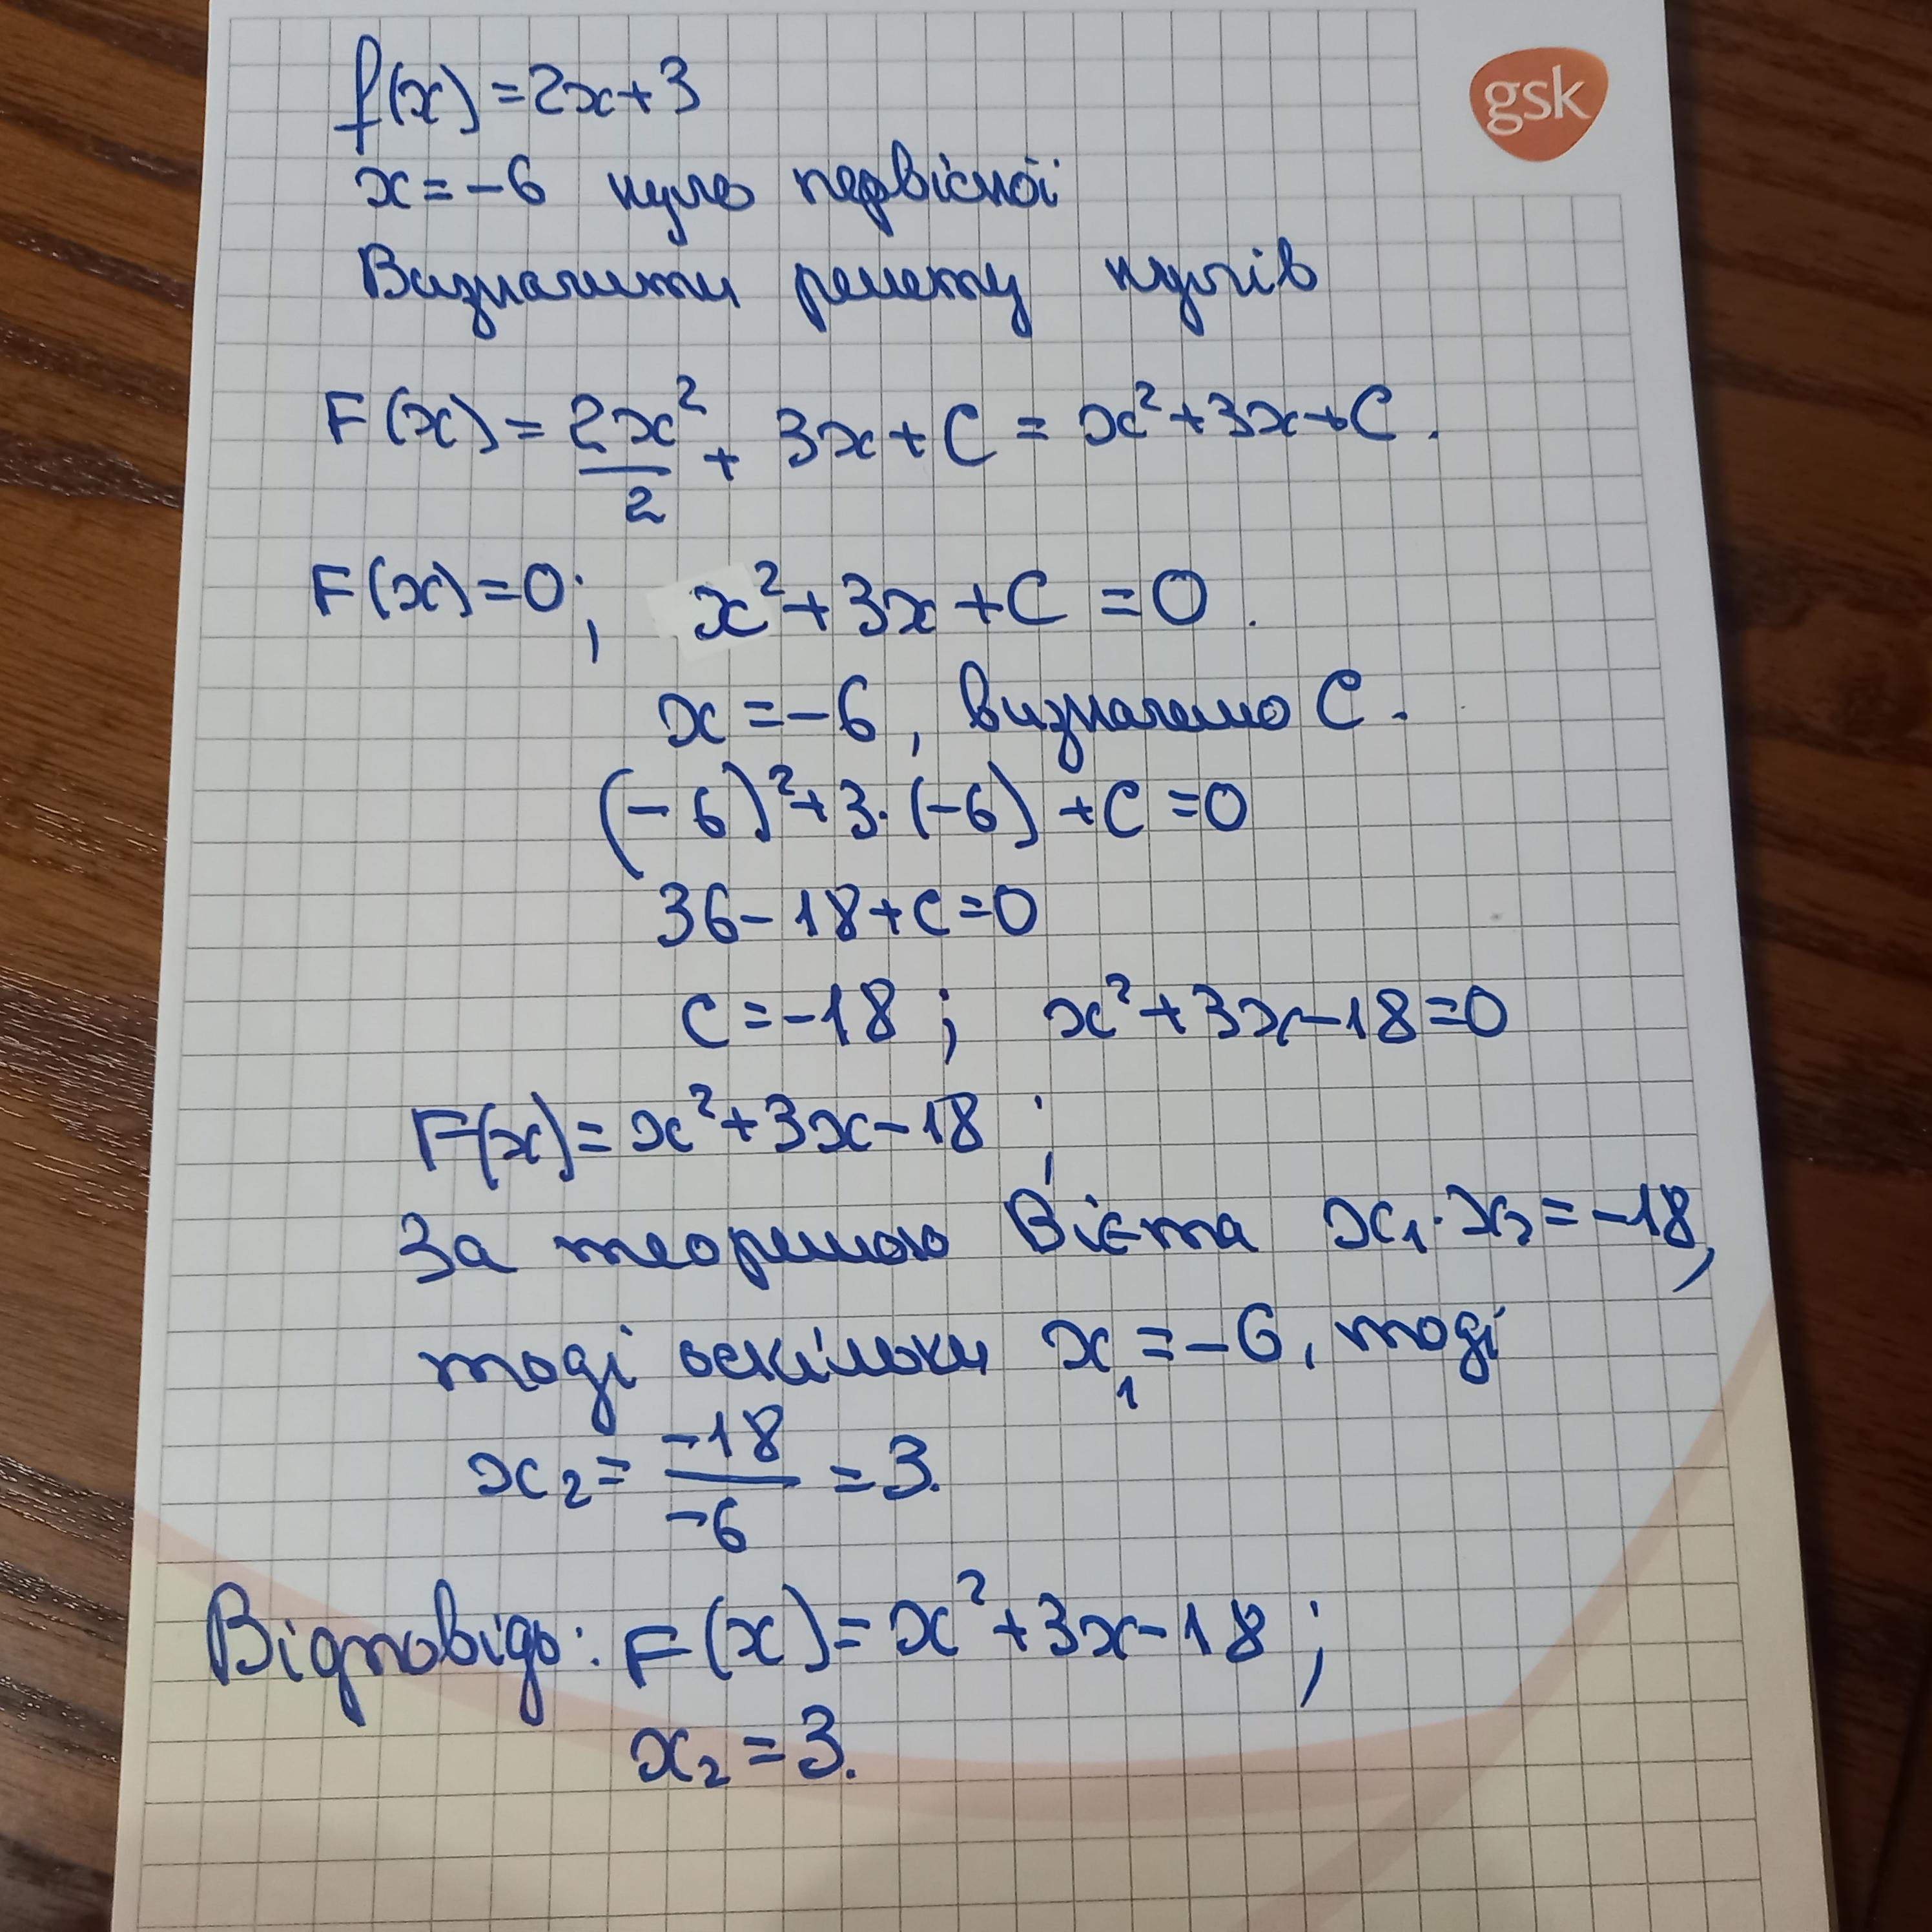 gsk
f(x) = 2x+3
x = -6 нуль первісної
Визначити решту нулів
F(x) = 2x²/2 + 3x + C = x² + 3x + C.
F(x) = 0; x² + 3x + C = 0.
x = -6, визначемо C.
(-6)² + 3·(-6) + C = 0
36 - 18 + C = 0
C = -18; x² + 3x - 18 = 0
F(x) = x² + 3x - 18;
За теоремою Вієта x₁·x₂ = -18,
тоді оскільки x₁ = -6, тоді
x₂ = -18/-6 = 3.
Відповідь: F(x) = x² + 3x - 18;
x₂ = 3.